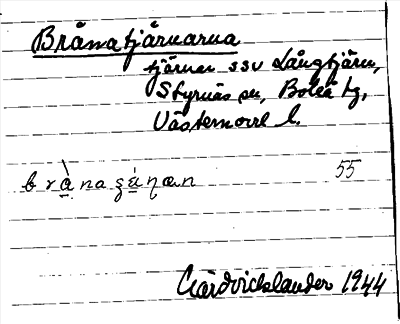 Brånatjärnarna
tjärnar ssv Långtjärn,
Styrnäs sn, Boteå tg,
Västernorrl l.
brànaʂáɳæn 55
Gärdvicklander 1944